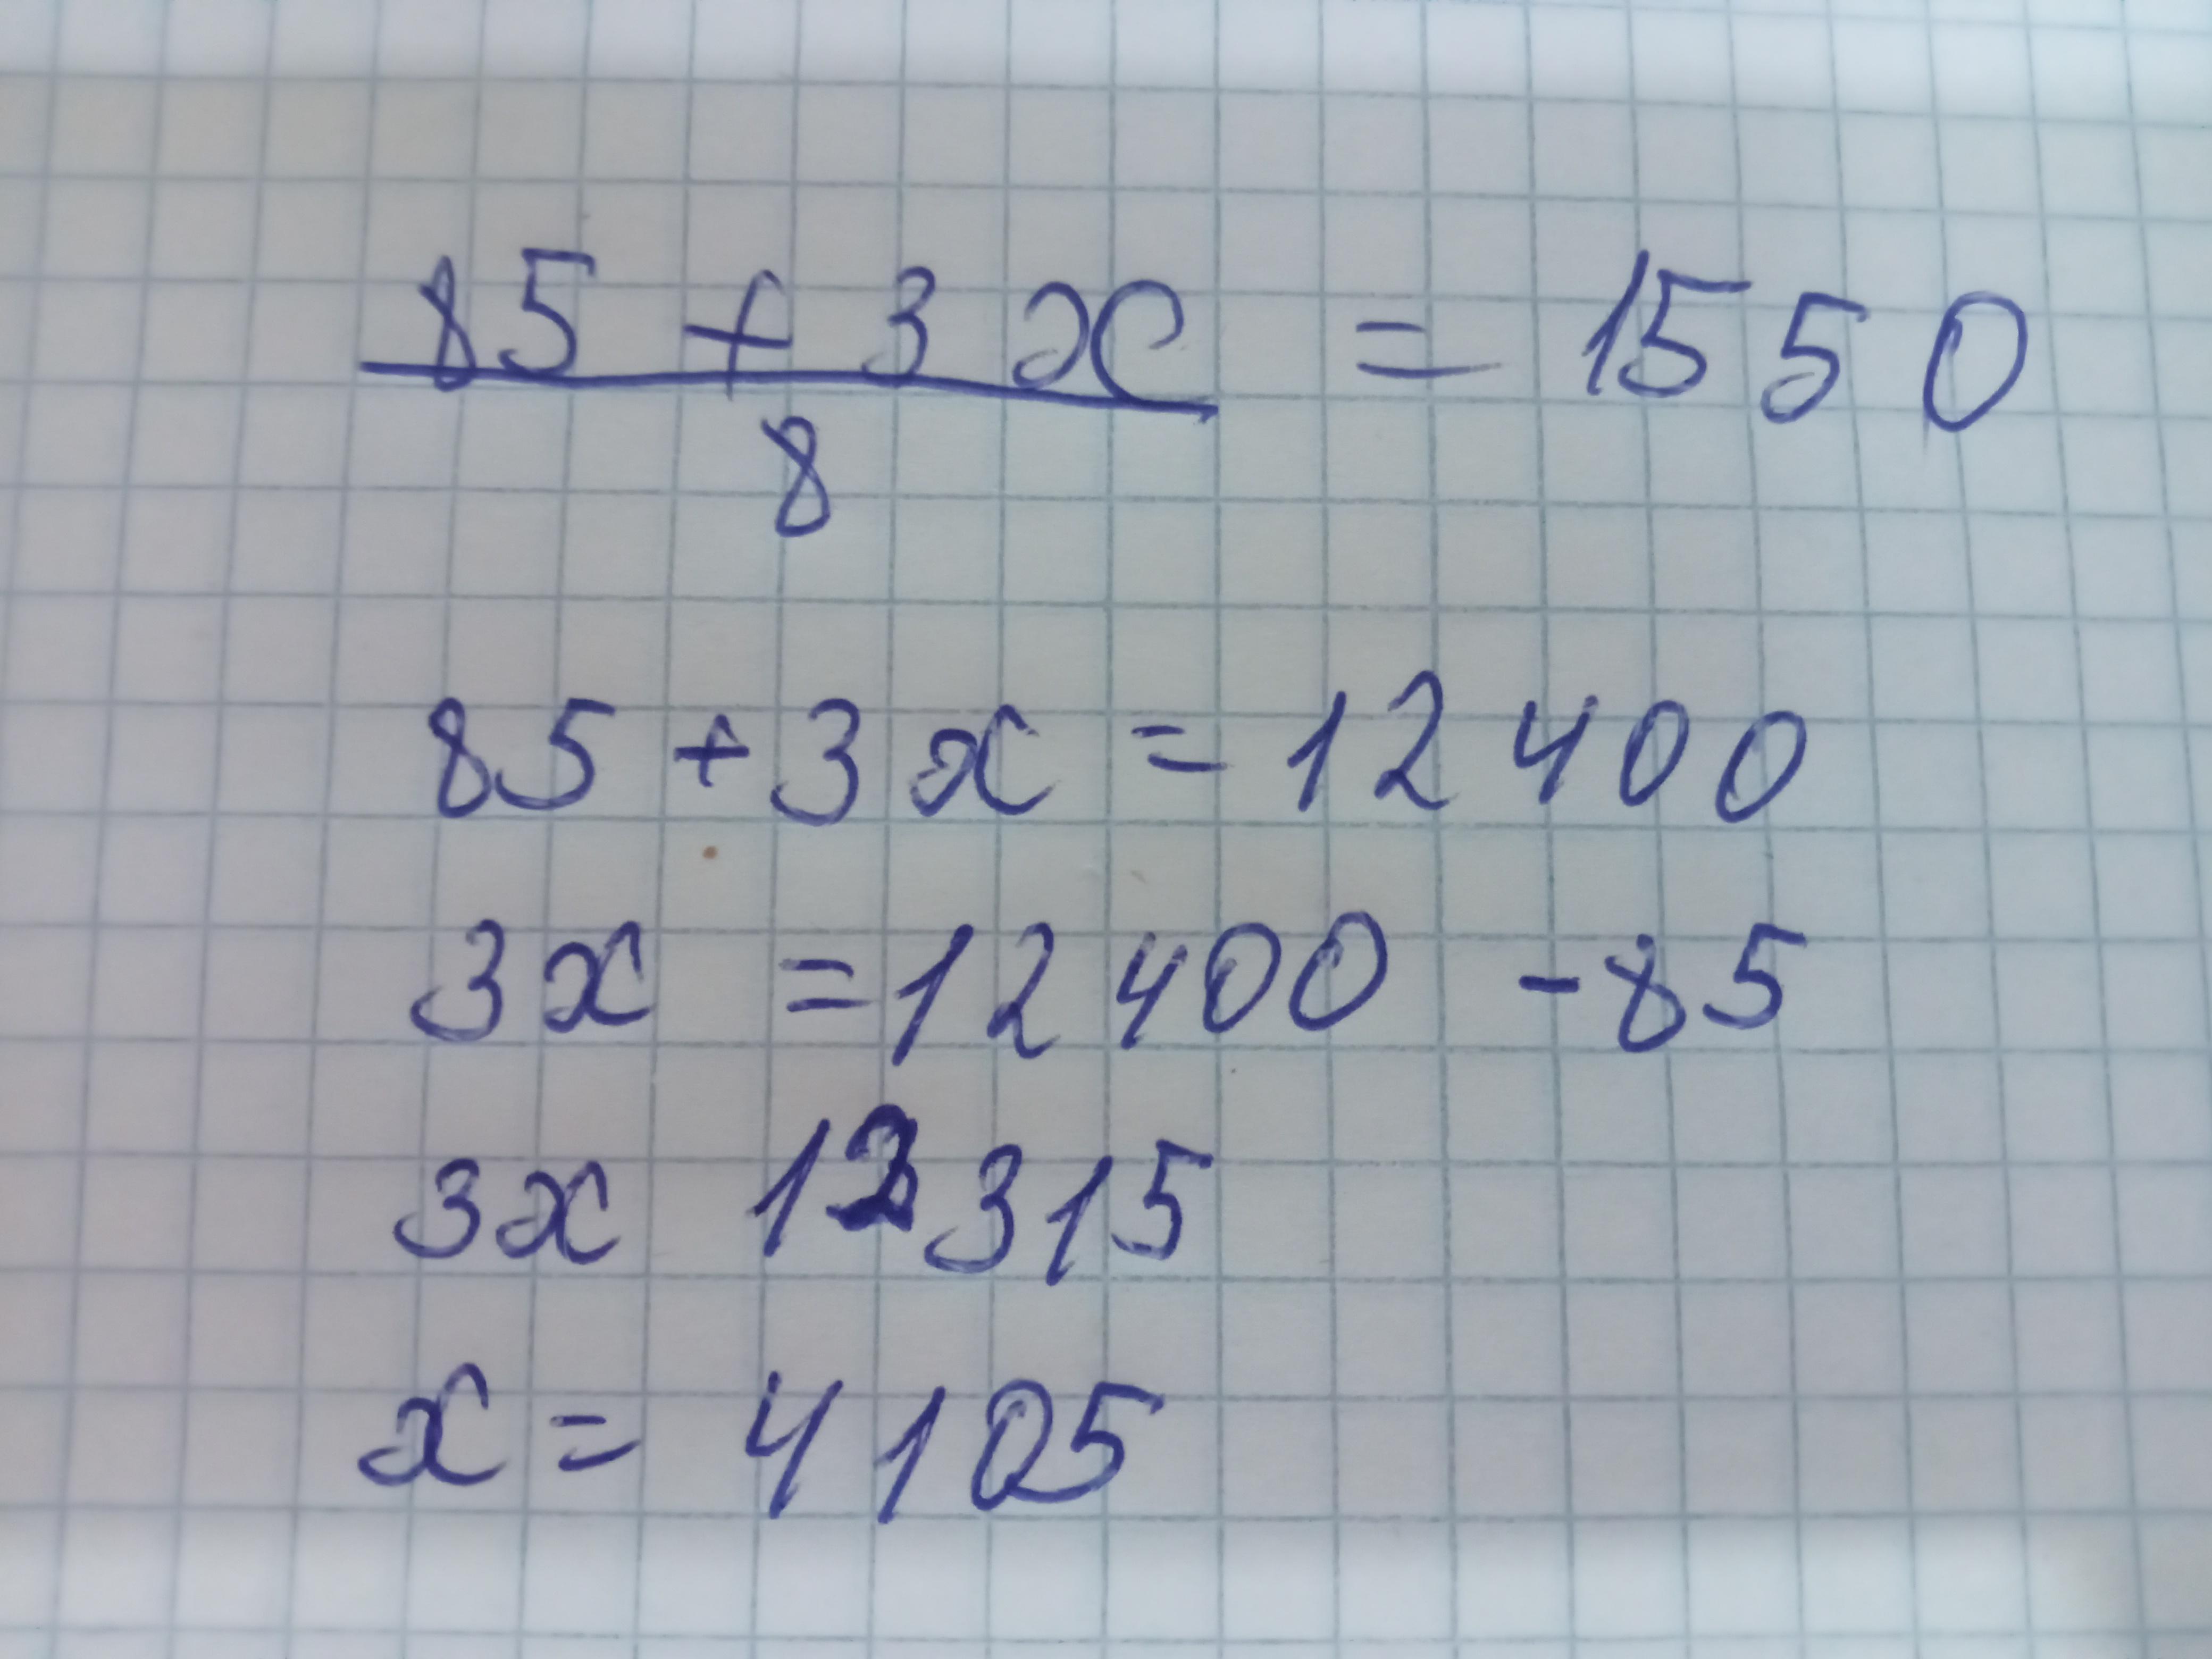 85 + 3x = 1550
8
85 + 3x = 12400
3x = 12400 - 85
3x 12315
x = 4105